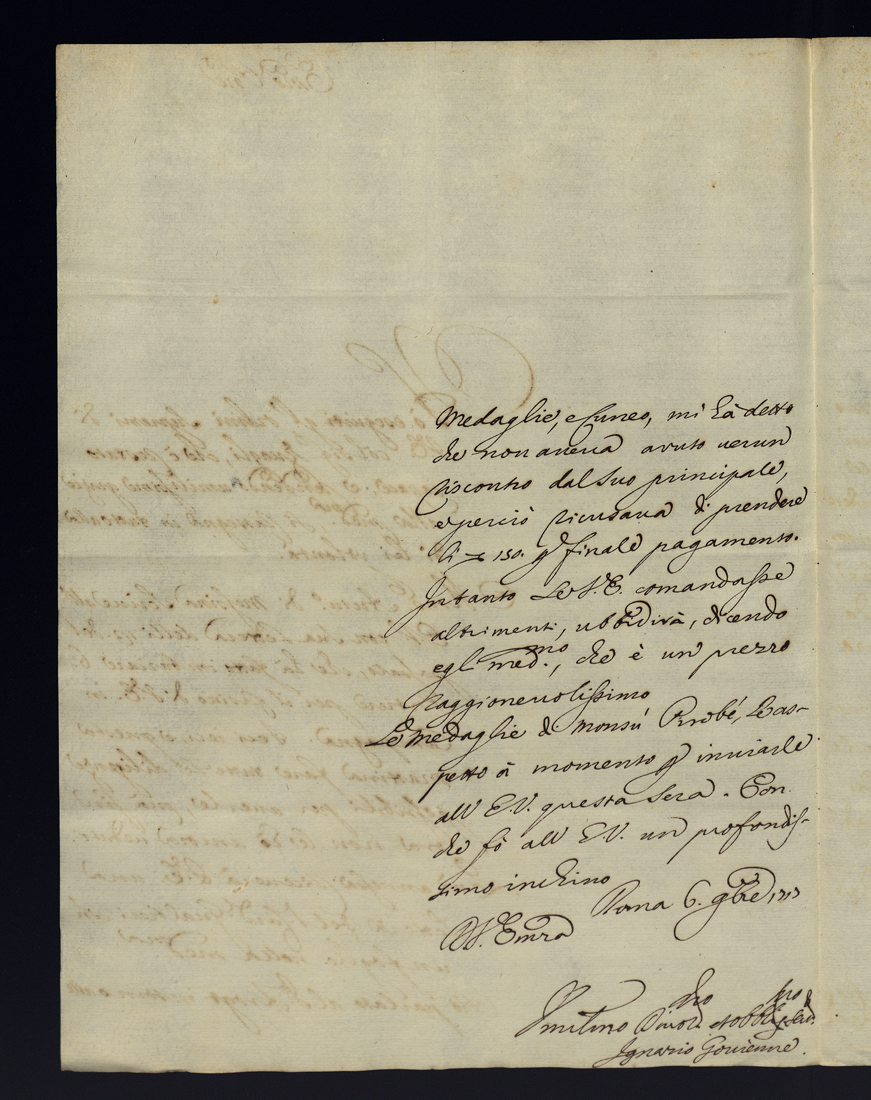 Medaglie, e Cuneo, mi hà detto
che non aveva avuto verun
riscontro dal suo principale,
e perciò ricusava di prendere
li 150. p finale pagamento.
Intanto se V.E. comandasse
altrimenti, ubbidirà, dicendo
egl' med.mo, che è un prezzo
raggionevolissimo
Le Medaglie di Monsù le as-
petto à momento p inviarle
all' E.V. questa sera. Con
che fò all' E.V. un profondis-
simo inchino
Roma 6. gbre 1713
D V. Emza
Umilmo Divot. et obblig. Ser.
Ignazio